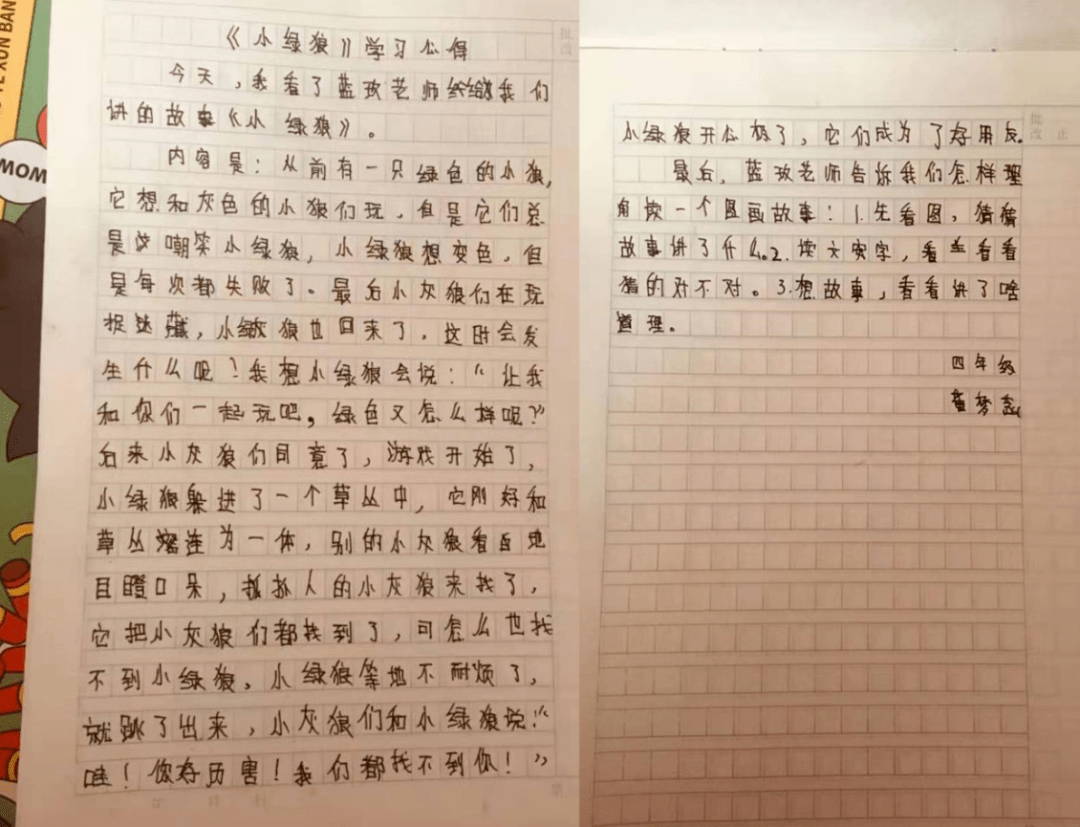 《小绿狼》学习心得
今天，我看了蓝玫老师给我们
讲的故事《小绿狼》。
内容是：从前有一只绿色的小狼，
它想和灰色的小狼们玩，但是它们总
是嘲笑小绿狼，小绿狼想变色，但
是每次都失败了。最后小灰狼们在玩
捉迷藏，小绿狼也回来了，这时会发
生什么呢？我想小绿狼会说：“让我
和你们一起玩吧，绿色又怎么样呢？”
后来小灰狼们同意了，游戏开始了，
小绿狼躲进了一个草丛中，它刚好和
草丛连为一体，别的小灰狼看的地
目瞪口呆，抓人的小灰狼来找了，
它把小灰狼们都找到了，可怎么也找
不到小绿狼。小绿狼等地不耐烦了，
就跳了出来，小灰狼们和小绿狼说：“
哇！你好历害！我们都找不到你！”
小绿狼开心极了，它们成为了好朋友
最后，蓝玫老师告诉我们怎样理
角读一个图画故事：1.先看图，猜猜
故事讲了什么。2.读文字，看看
猜的对不对。3.想故事，看看讲了啥
道理。
四年级
董梦
MOM